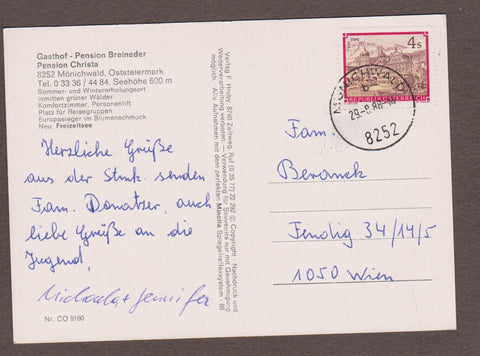 Gasthof - Pension Breineder
Pension Christa
8252 Mönichwald, Oststeiermark
Tel. 0 33 36 / 44 84, Seehöhe 600 m
Sommer- und Wintererholungsort
inmitten grüner Wälder
Komfortzimmer, Personenlift
Platz für Reisegruppen
Europasieger im Blumenschmuck
Neu: Freizeitsee
Herzliche Grüße
aus der Stmk. senden
Fam. Donatzer, auch
liebe Grüße an die
Jugend,
Michaela + Jennifer
Nr. CO 9160
Verlag F. Hruby, 8740 Zeltweg, Ruf (0 35 77) 22 292 © Copyright - Nachdruck und
Weiterverarbeitung verboten - Verwendung für Souvenirs nur mit Genehmigung
möglich - Alle Aufnahmen mit dem perfekten Minolta Spiegelreflexsystem - 88
4 S
REPUBLIK ÖSTERREICH
MÖNICHWALD
29.-8.88
8252
Fam.
Beranek
Fendig 34/14/5
1050 Wien